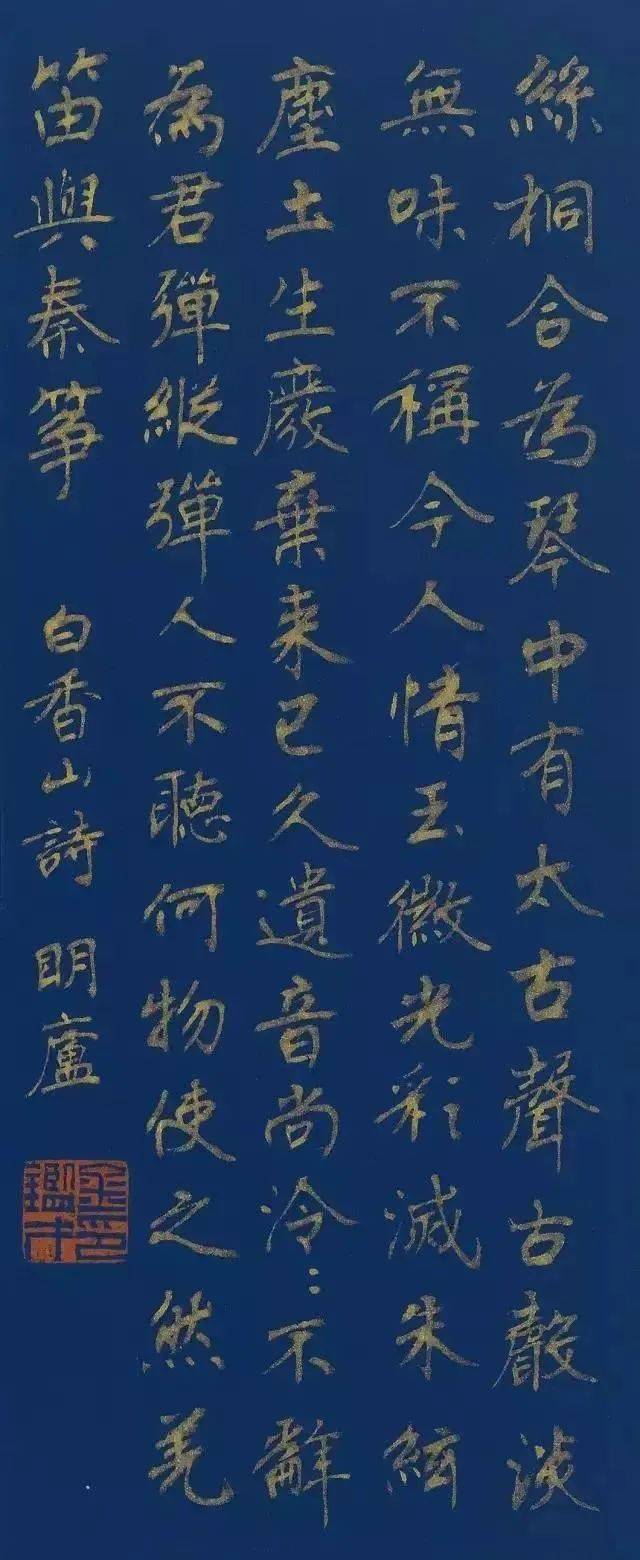 絲桐合為琴中有太古聲古聲淡
無味不稱今人情玉徽光彩滅朱絃
塵土生廢棄来已久遺音尚泠〻不辭
為君彈縱彈人不聽何物使之然羌
笛與秦筝
白香山詩 明廬
金鑑才印